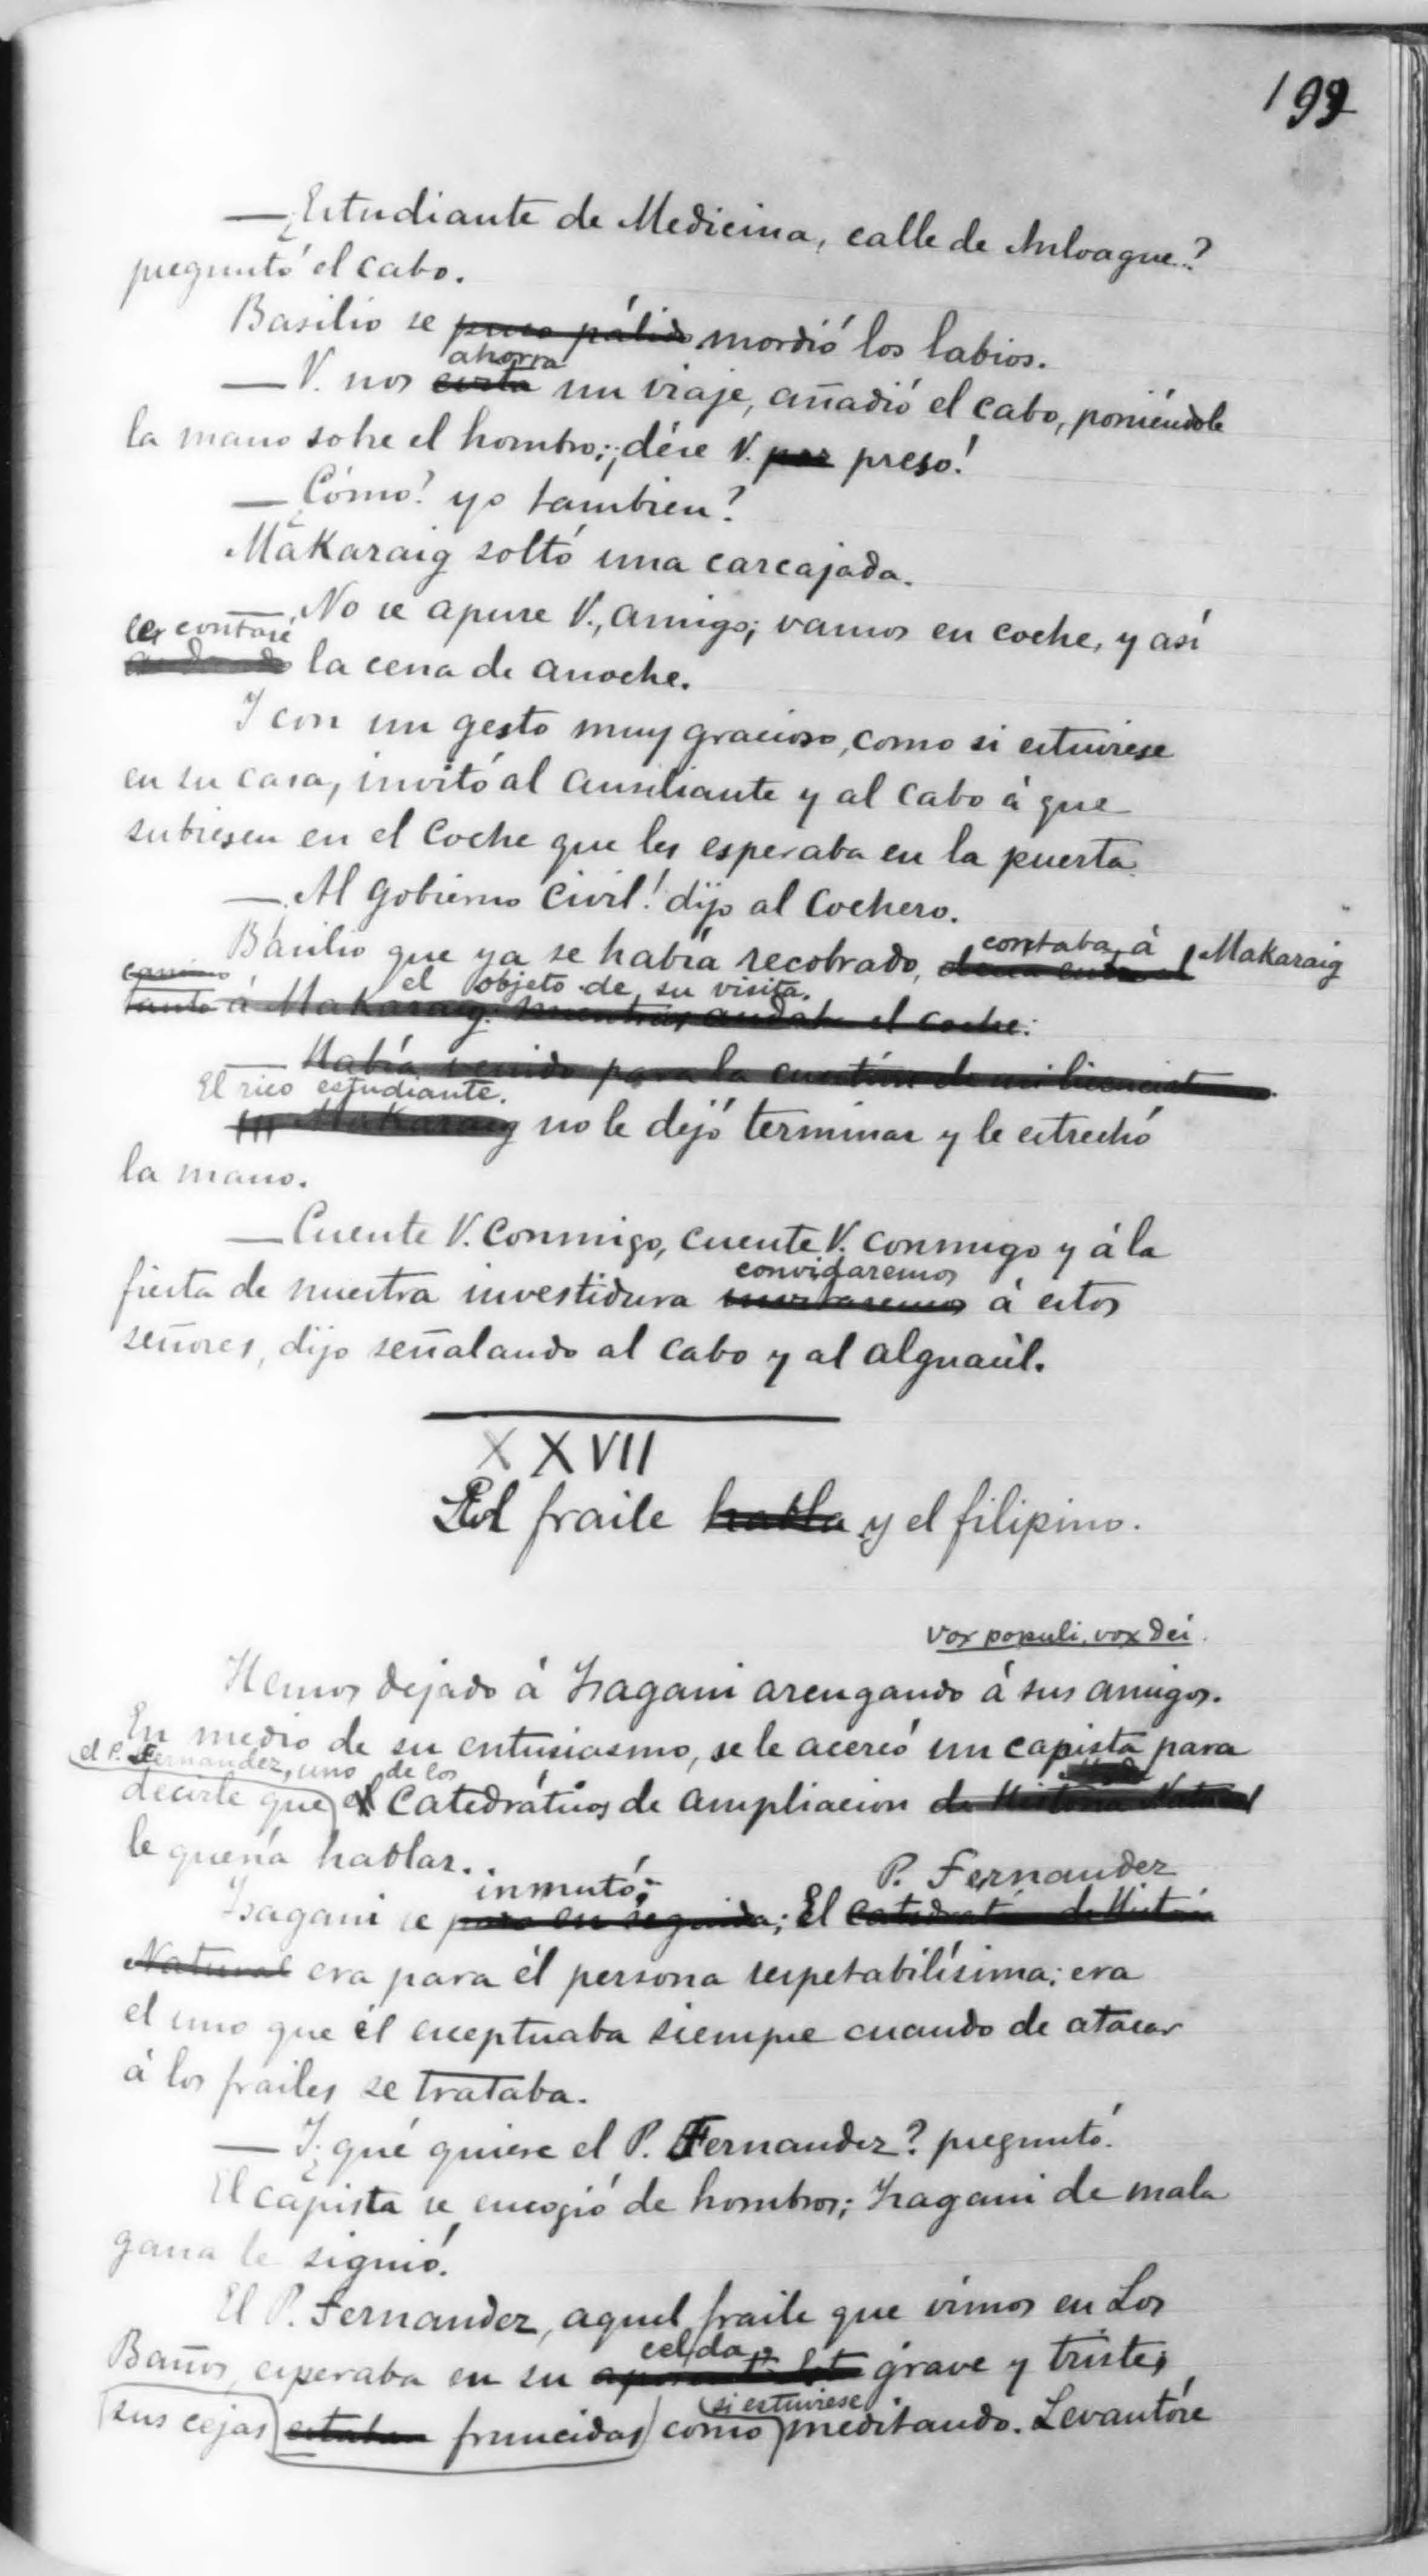 199
—¿Estudiante de Medicina, calle de Anloague?
preguntó el cabo.
Basilio se puso pálido mordió los labios.
ahorra
—V. nos evita un viaje, añadió el cabo, poniéndole
la mano sobre el hombro; ¡dése V. por preso!
—¿Cómo? yo tambien?
Makaraig soltó una carcajada.
—No se apure V., amigo; vamos en coche, y así
les contaré
la cena de anoche.
Y con un gesto muy gracioso, como si estuviese
en su casa, invitó al ausiliante y al cabo á que
subiesen en el coche que les esperaba en la puerta.
—Al Gobierno Civil! dijo al cochero.
contaba á Makaraig
Basilio que ya se había recobrado,
camino el objeto de su visita.
tanto á Makaraig. mientras andaba el coche:
—Había venido para la cuestión de mi licenciat
El rico estudiante.
Makaraig no le dejó terminar y le estrechó
la mano.
—Cuente V. conmigo, cuente V. conmigo y á la
convidaremos
fiesta de nuestra investidura invitaremos á estos
señores, dijo señalando al cabo y al alguacil.
XXVII
El fraile habla y el filipino.
Vox populi, vox Dei.
Hemos dejado á Isagani arengando á sus amigos.
En medio de su entusiasmo, se le acercó un capista para
el P. Fernandez, uno de los
decirle que el Catedráticos de ampliacion de Historia Natural
le quería hablar.
inmutó: P. Fernandez
Isagani se puso en seguida; El catedrático de Historia
Natural era para él persona respetabilísima; era
el uno que él exceptuaba siempre cuando de atacar
á los frailes se trataba.
—Y ¿qué quiere el P. Fernandez? preguntó.
El capista se encogió de hombros; Isagani de mala
gana le siguió.
El P. Fernandez, aquel fraile que vimos en Los
celda
Baños, esperaba en su grave y triste,
si estuviese
sus cejas estaban fruncidas como meditando. Levantóse